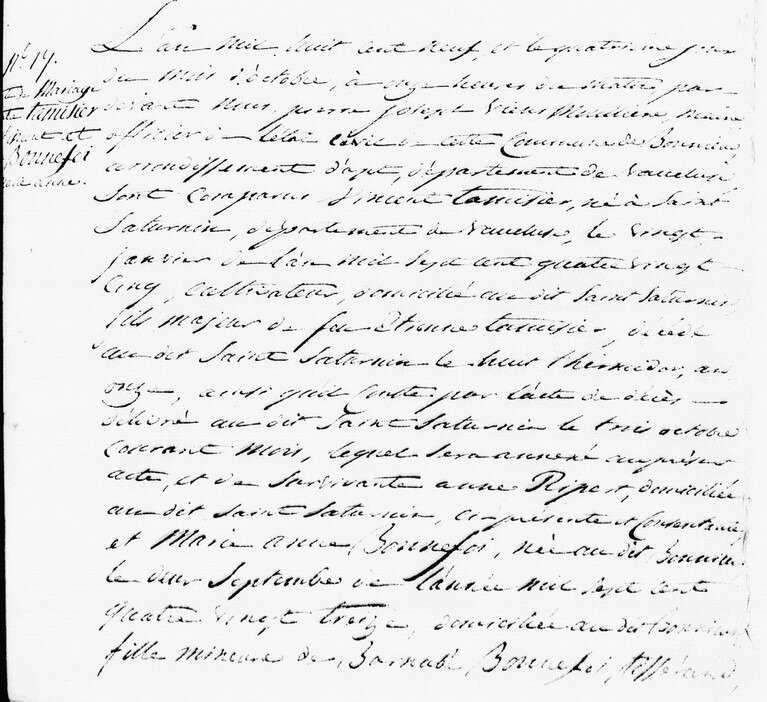 N.º 19.
de Mariage
de tamisier
Vincent et
Bonnefoi
marie anne.
L'an mil huit cent neuf, et le quatrieme jour
du mois d'octobre, à onze heures du matin par
devant nous, pierre Joseph Viens Moulliere, maire
officier de l'état civil de cette Commune de Bonnieux,
arrondissement d'apt, département de vaucluse,
sont comparus Vincent tamisier, né à Saint
Saturnin, département de vaucluse, le vingt
janvier de l'an mil sept cent quatre vingt
cinq, cultivateur, domicilié au dit Saint Saturnin
fils majeur de feu Etienne tamisier, décédé
au dit Saint Saturnin le huit thermidor, an
onze, ainsi qu'il conste par l'acte de décès
délivré au dit Saint Saturnin le trois octobre
courant mois, lequel sera annexé au présent
acte, et de Survivante anne Ripert, domiciliée
au dit Saint Saturnin, ci présente et Consentante,
et Marie anne Bonnefoi, née au dit Bonnieux
le deux Septembre de l'année mil sept cent
quatre vingt treize, domiciliée au dit Bonnieux
fille mineure de Barnabé Bonnefoi, tisserand,